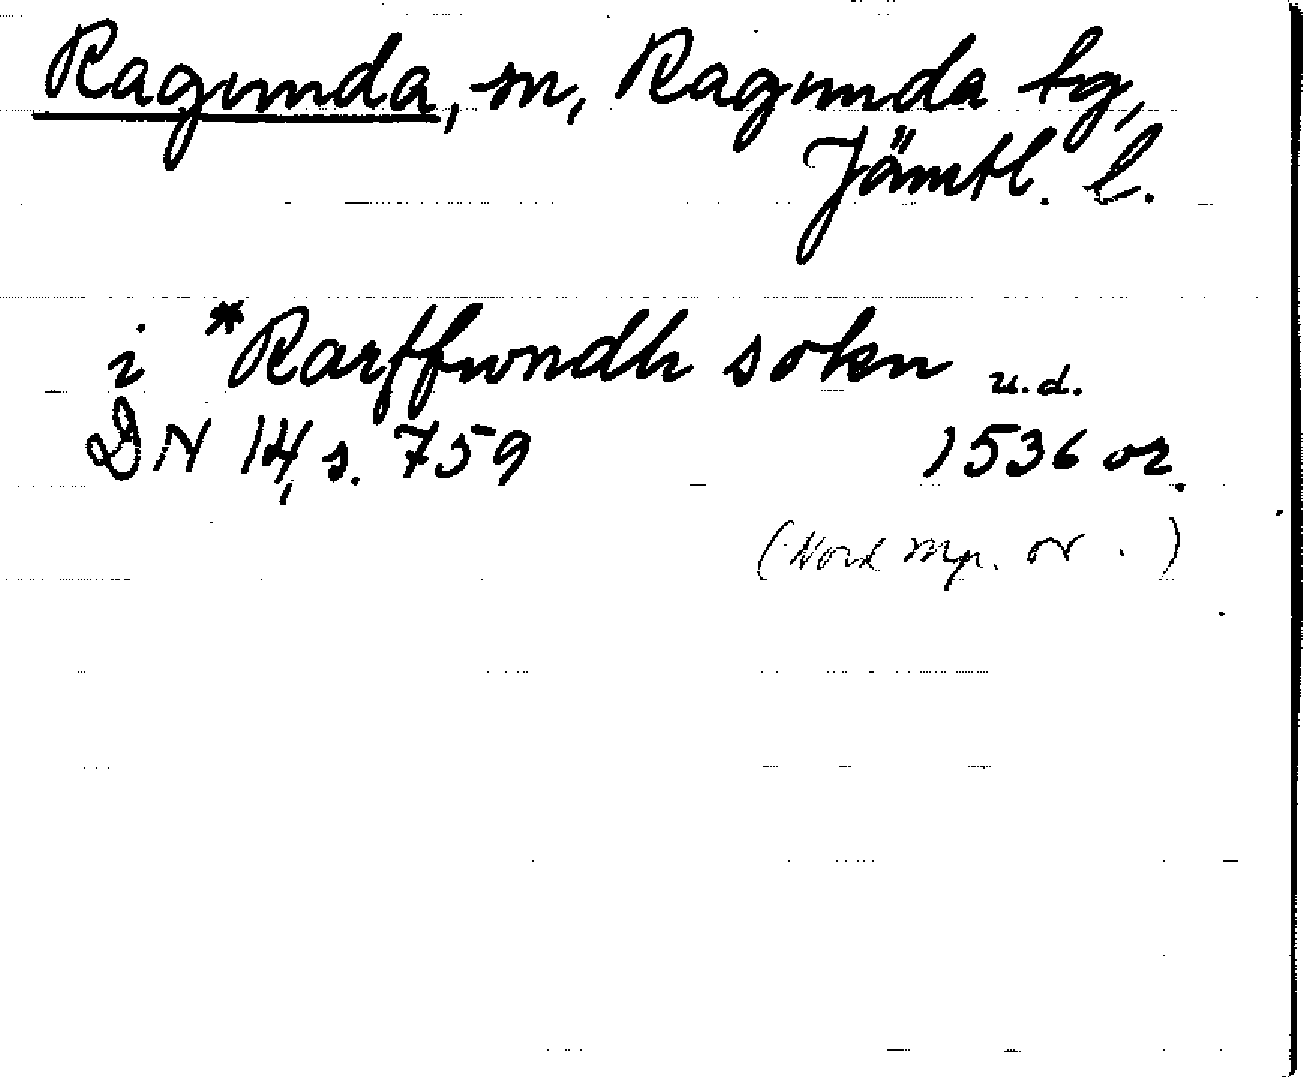 Ragunda, sn, Ragunda tg,
Jämtl. l.
i *Rarffwndh sokn u.d.
DN 14, s. 759 1536 or.
(Nord